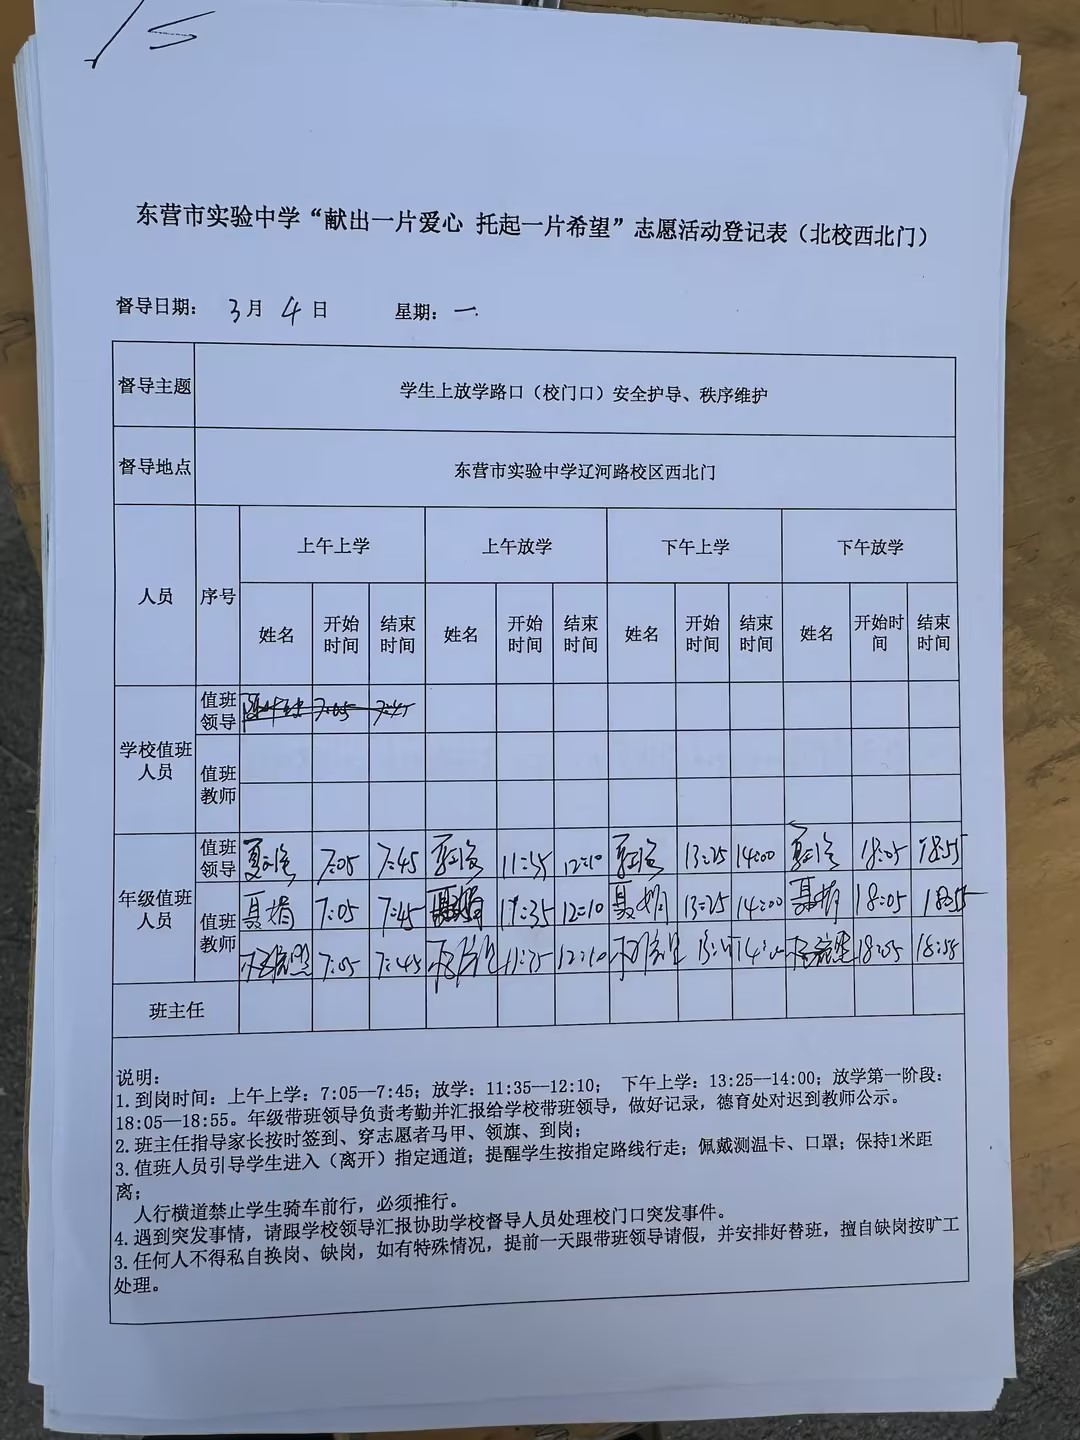 东营市实验中学“献出一片爱心 托起一片希望”志愿活动登记表（北校西北门）
督导日期： 3月 4日 星期：一
督导主题 学生上放学路口（校门口）安全护导、秩序维护
督导地点 东营市实验中学辽河路校区西北门
人员 序号 上午上学 上午放学 下午上学 下午放学
姓名 开始时间 结束时间 姓名 开始时间 结束时间 姓名 开始时间 结束时间 姓名 开始时间 结束时间
学校值班人员 值班领导 7:05 7:45
值班教师
年级值班人员 值班领导 7:05 7:45 11:35 12:10 13:25 14:00 18:05 18:55
值班教师 聂娟 7:05 7:45 聂娟 11:35 12:10 聂娟 13:25 14:00 聂娟 18:05 18:55
7:05 7:45 11:35 12:10 18:05 18:55
班主任
说明：
1.到岗时间：上午上学：7:05--7:45；放学：11:35--12:10； 下午上学：13:25--14:00；放学第一阶段：
18:05--18:55。年级带班领导负责考勤并汇报给学校带班领导，做好记录，德育处对迟到教师公示。
2.班主任指导家长按时签到、穿志愿者马甲、领旗、到岗；
3.值班人员引导学生进入（离开）指定通道；提醒学生按指定路线行走；佩戴测温卡、口罩；保持1米距
离；
人行横道禁止学生骑车前行，必须推行。
4.遇到突发事情，请跟学校领导汇报协助学校督导人员处理校门口突发事件。
3.任何人不得私自换岗、缺岗，如有特殊情况，提前一天跟带班领导请假，并安排好替班，擅自缺岗按旷工
处理。